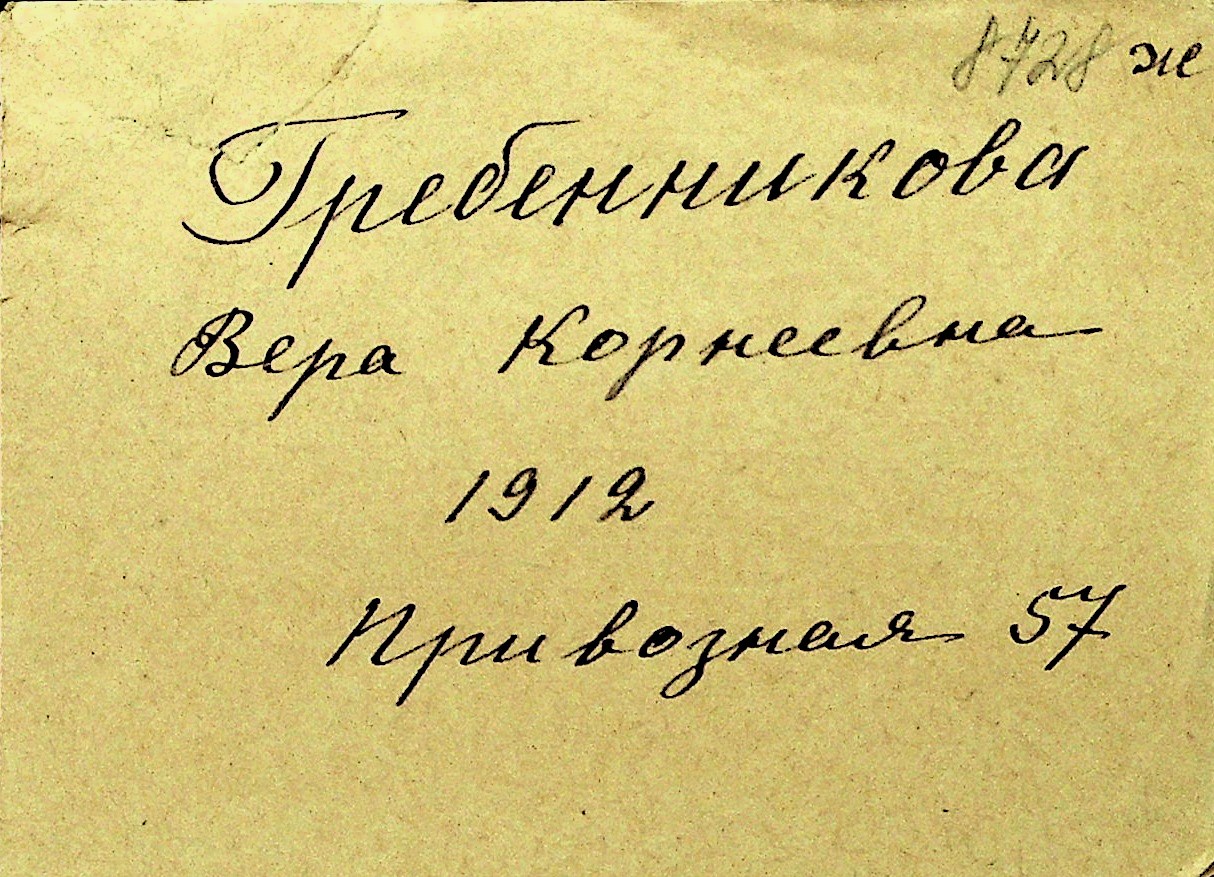 8728 ж
Гребенникова
Вера Корнеевна
1912
Привозная 57